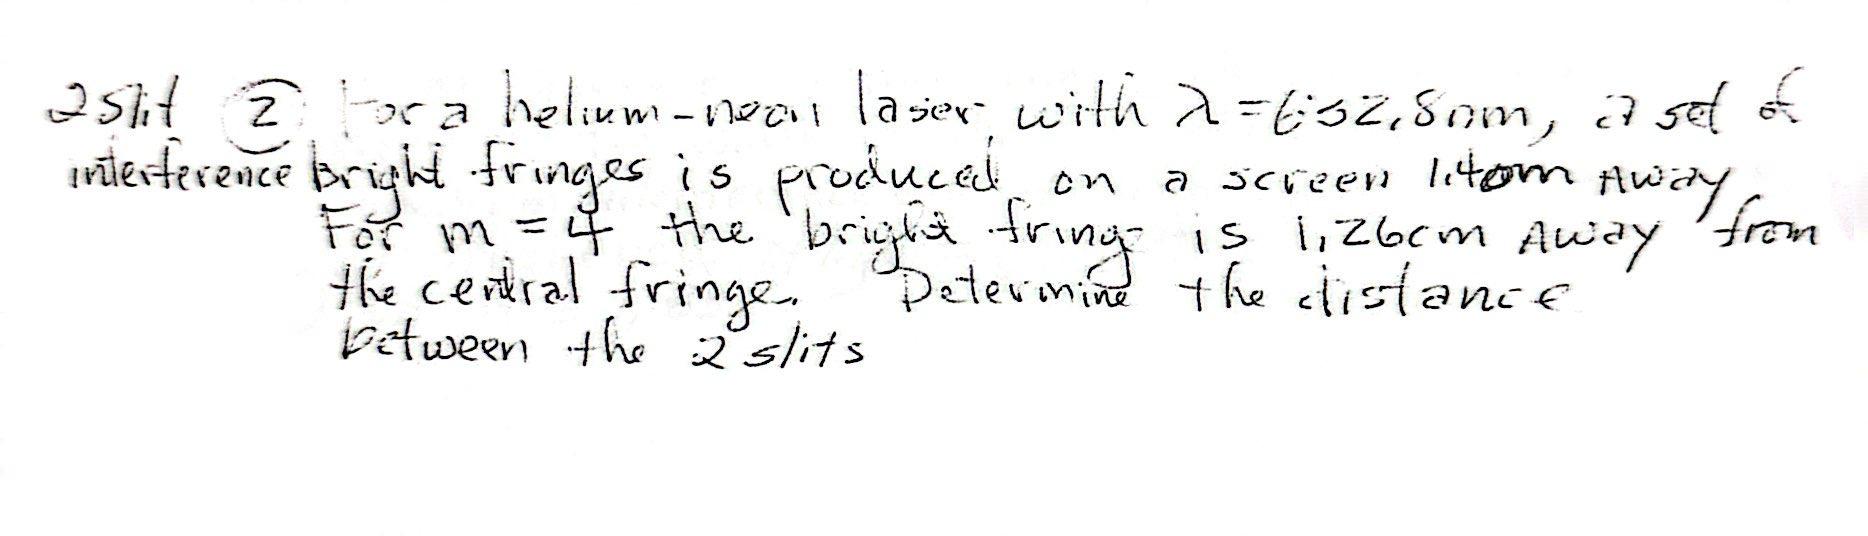 2 slit ② For a helium-neon laser with λ = 632.8nm, a set of
interference bright fringes is produced on a screen away
For m = 4 the bright fringe is 1.26cm away from
the central fringe. Determine the distance
between the 2 slits